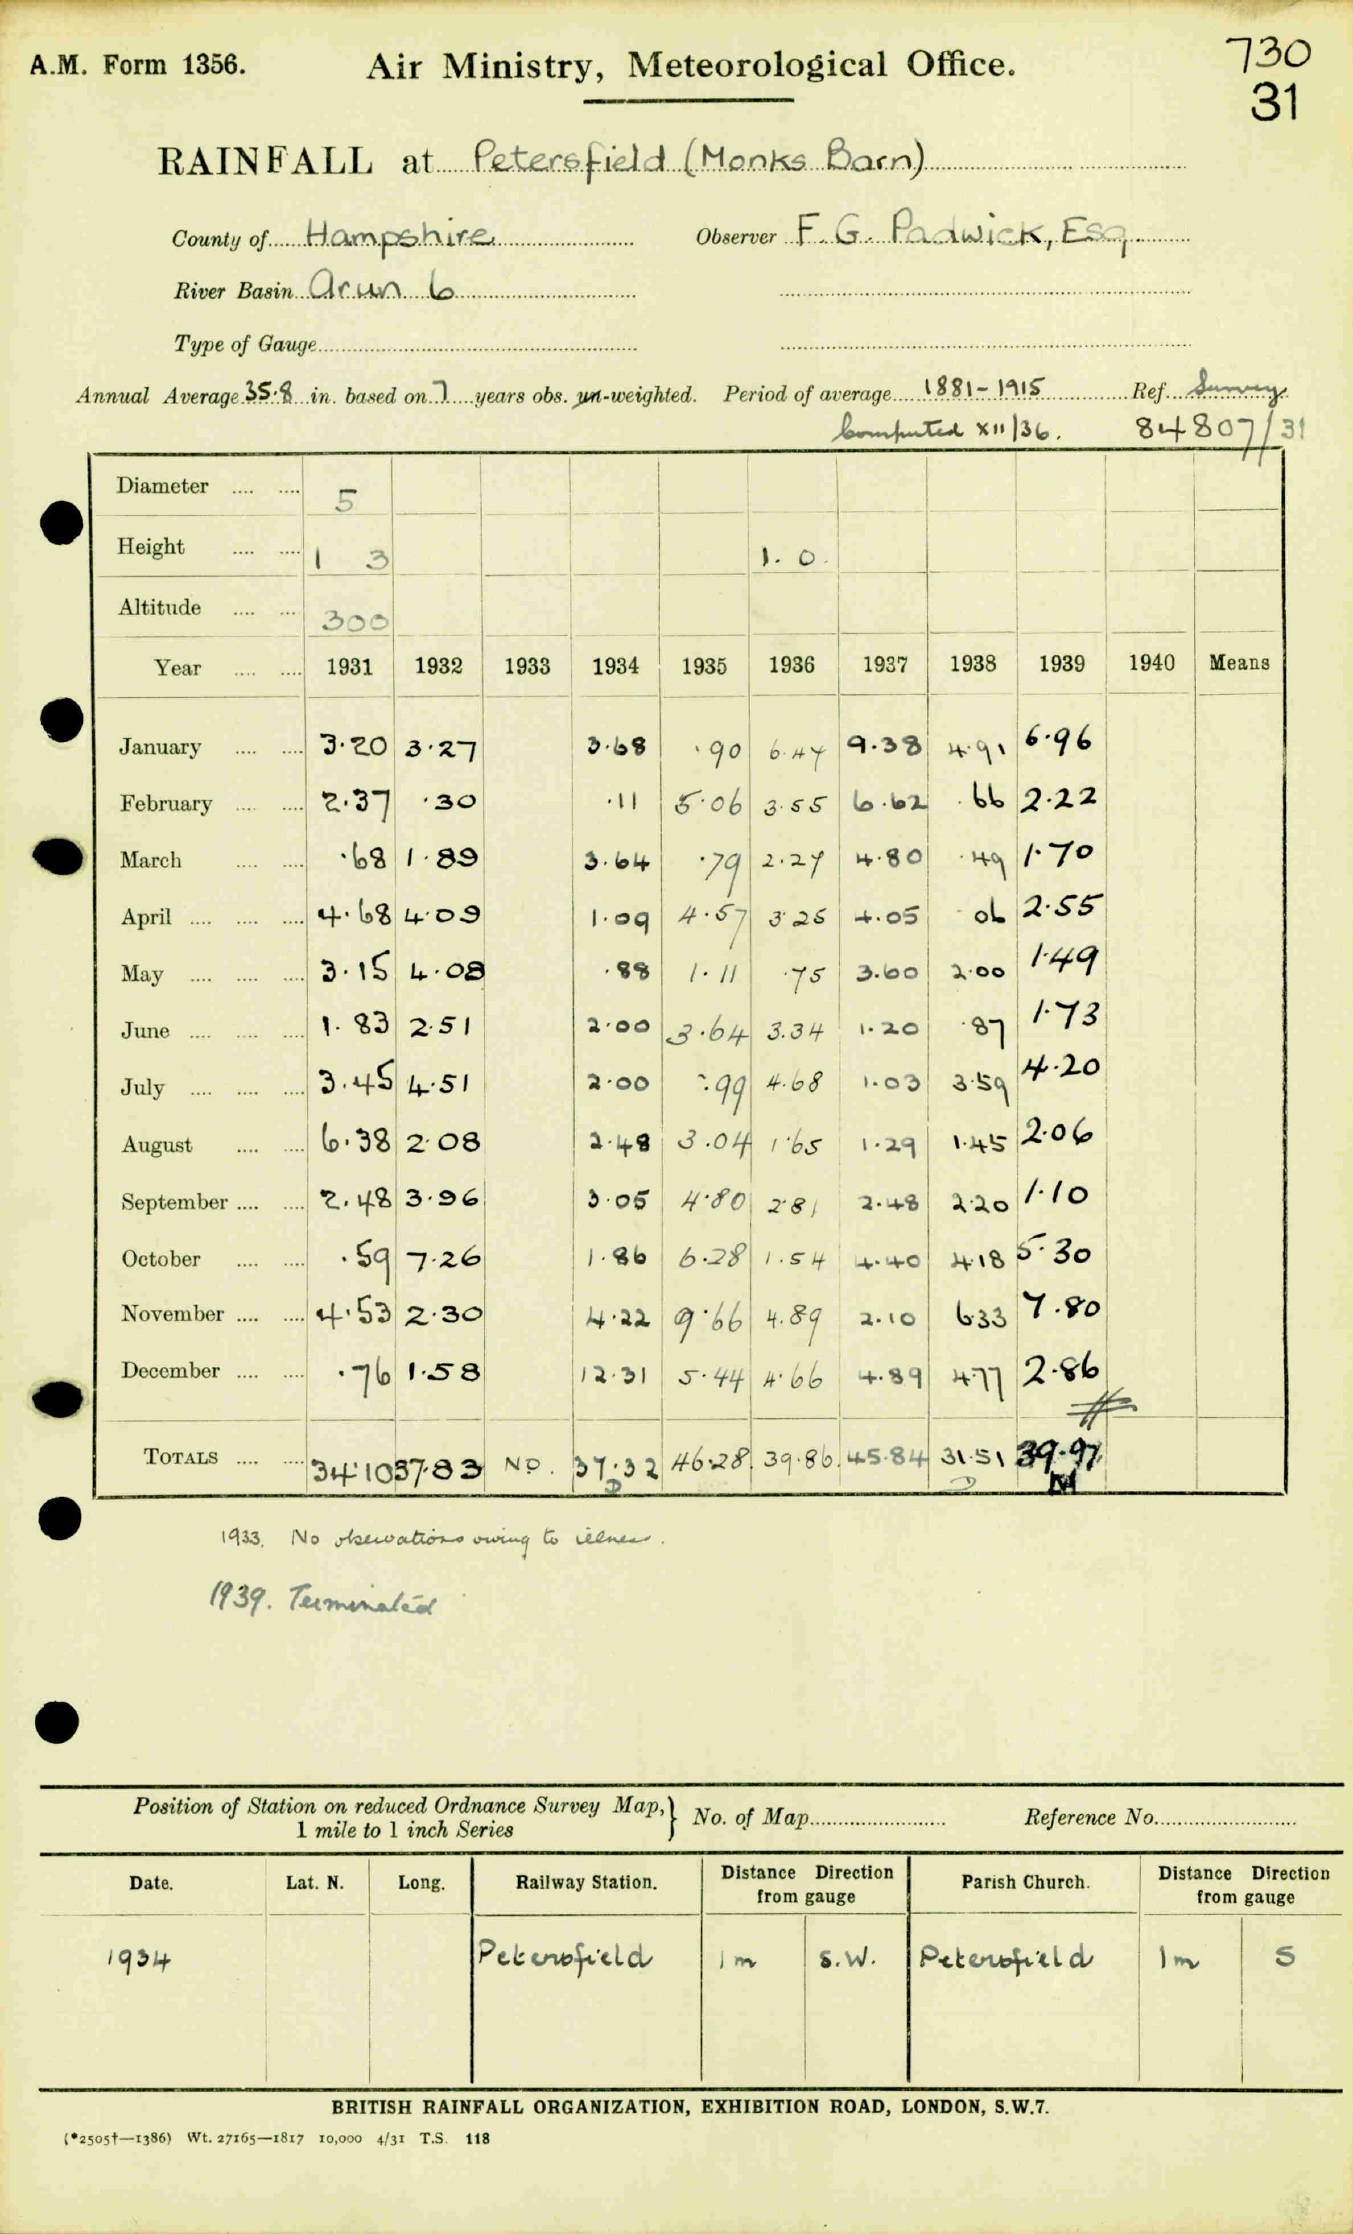 A.M. Form 1356. Air Ministry, Meteorological Office. 730
31
RAINFALL at Petersfield (Monks Barn)
County of Hampshire Observer F. G. Padwick, Esq
River Basin Arun 6
Type of Gauge
Annual Average 35.8 in. based on 7 years obs. un-weighted. Period of average 1881-1915 Ref. Survey
Computed XII/36. 84807/31
Diameter 5
Height 1 3 1. 0
Altitude 300
Year 1931 1932 1933 1934 1935 1936 1937 1938 1939 1940 Means
January 3.20 3.27 3.68 .90 6.47 9.38 4.91 6.96
February 2.37 .30 .11 5.06 3.55 6.62 .66 2.22
March .68 1.89 3.64 .79 2.27 4.80 .49 1.70
April 4.68 4.09 1.09 4.57 3.25 4.05 06 2.55
May 3.15 4.08 .88 1.11 .75 3.60 2.00 1.49
June 1.83 2.51 2.00 3.64 3.34 1.20 .87 1.73
July 3.45 4.51 2.00 .99 4.68 1.03 3.59 4.20
August 6.38 2.08 2.48 3.04 1.65 1.29 1.45 2.06
September 2.48 3.96 3.05 4.80 2.81 2.48 2.20 1.10
October .59 7.26 1.86 6.28 1.54 4.40 4.18 5.30
November 4.53 2.30 4.22 9.66 4.89 2.10 6.33 7.80
December .76 1.58 12.31 5.44 4.66 4.89 4.77 2.86
TOTALS 34.10 37.83 NO. 37.32 46.28 39.86 45.84 31.51 39.97
D D M
1933. No observations owing to illness.
1939. Terminated
Position of Station on reduced Ordnance Survey Map,} No. of Map Reference No.
1 mile to 1 inch Series
Date. Lat. N. Long. Railway Station. Distance Direction from gauge Parish Church. Distance Direction from gauge
1934 Petersfield 1m S.W. Petersfield 1m S
BRITISH RAINFALL ORGANIZATION, EXHIBITION ROAD, LONDON, S.W.7.
(*2505†—1386) Wt. 27165—1817 10,000 4/31 T.S. 118